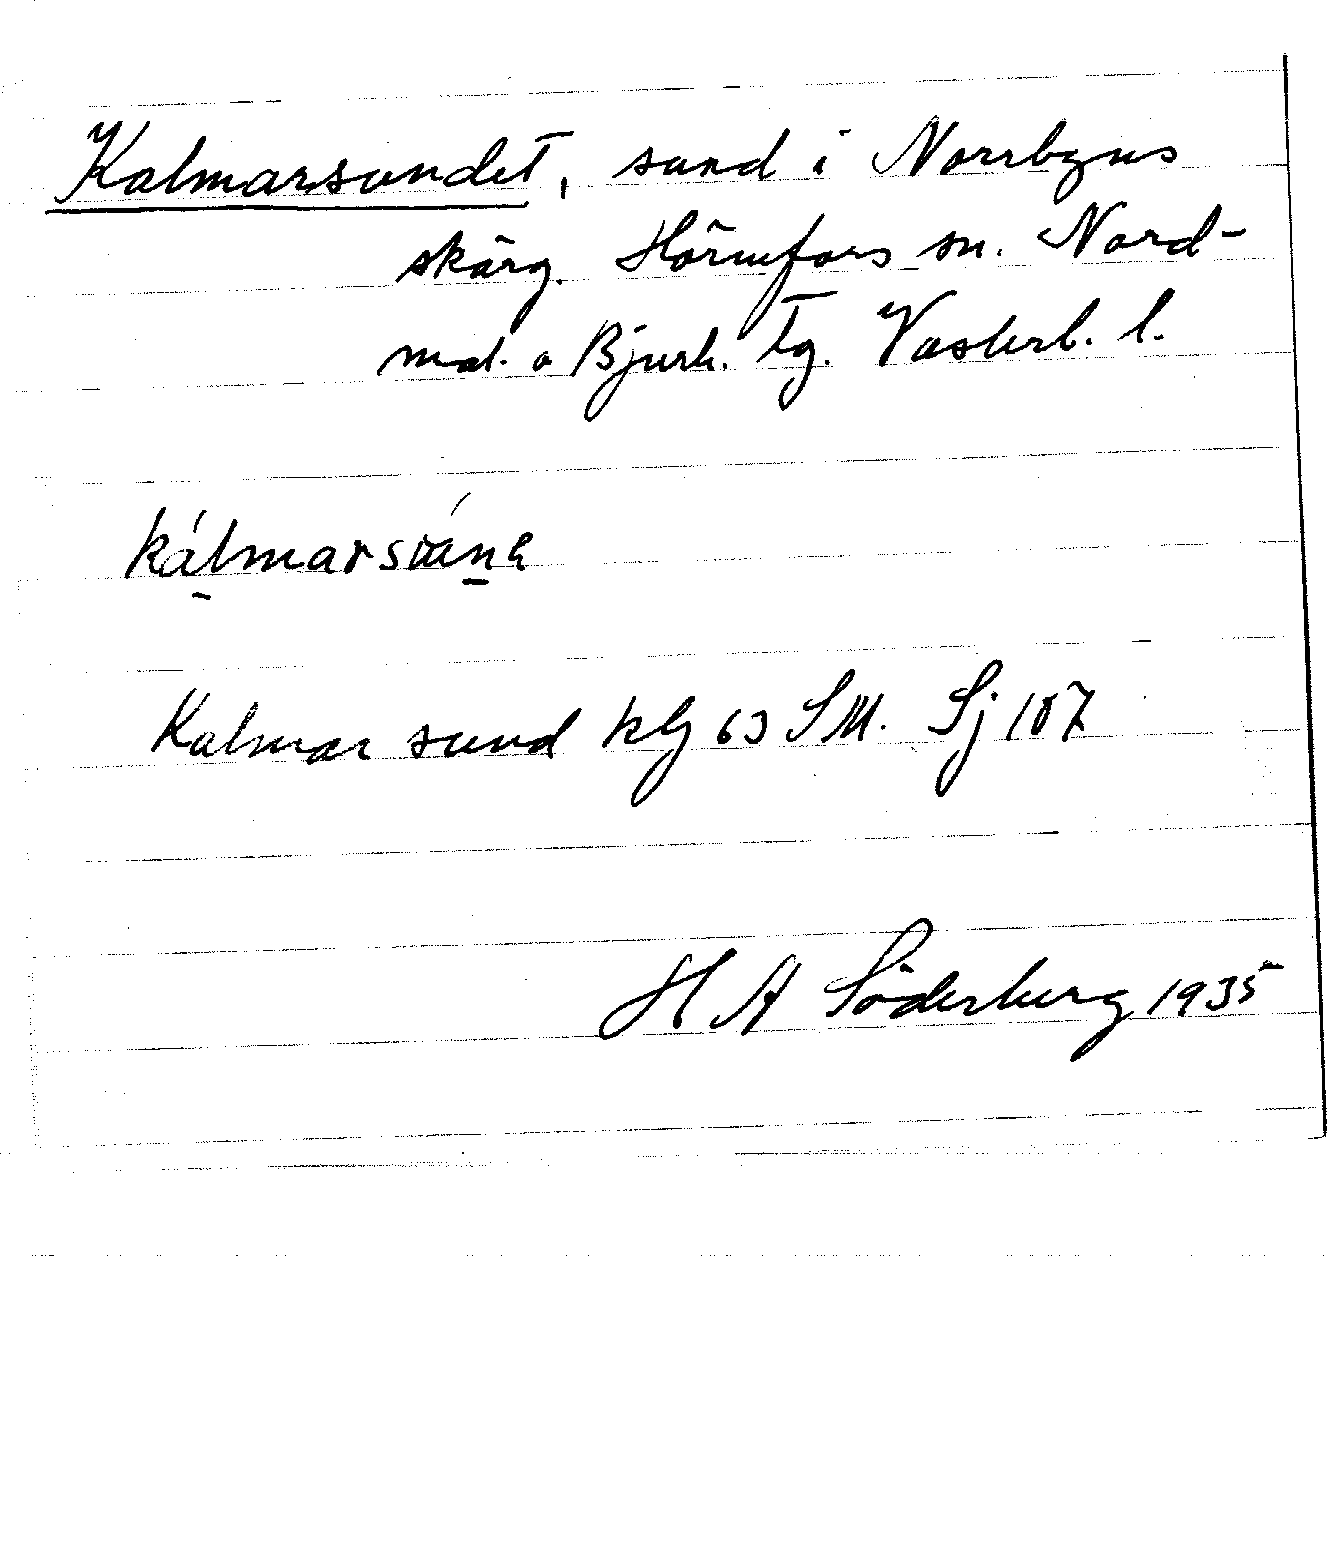 Kalmarsundet, sund i Norrbyns
skärg. Hörnefors sn. Nord-
mal. o Bjurh. tg. Västerb. l.
Kalmar sund klg 63 SM. Sj 107
H A Söderberg 1935